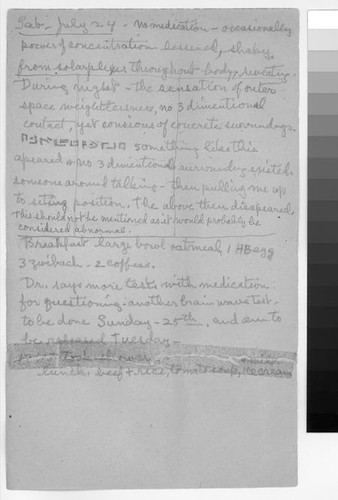 Sat. July 24 - No medication - occasionally
power of concentration lessened, shaky
from solarplexes throughout body, sweating.
During night - the sensation of outer
space weightlessness, no 3 dimentional
contact, yet consious of concrete surroundings.
something like this
apeared & no 3 dimentional surrounding existed.
someone around talking - then pulling me up
to siting position. The above then disapeared.
This should not be mentioned as it would probably be
considered abnormal.
Breakfast large bowl oatmeal, 1 HB egg
3 zwibach - 2 coffees.
Dr. says more tests with medication
for questioning. another brain wave test
to be done Sunday - 25th, and am to
be released Tuesday -
Took shower
Lunch: beef & rice, tomato soup, ice cream